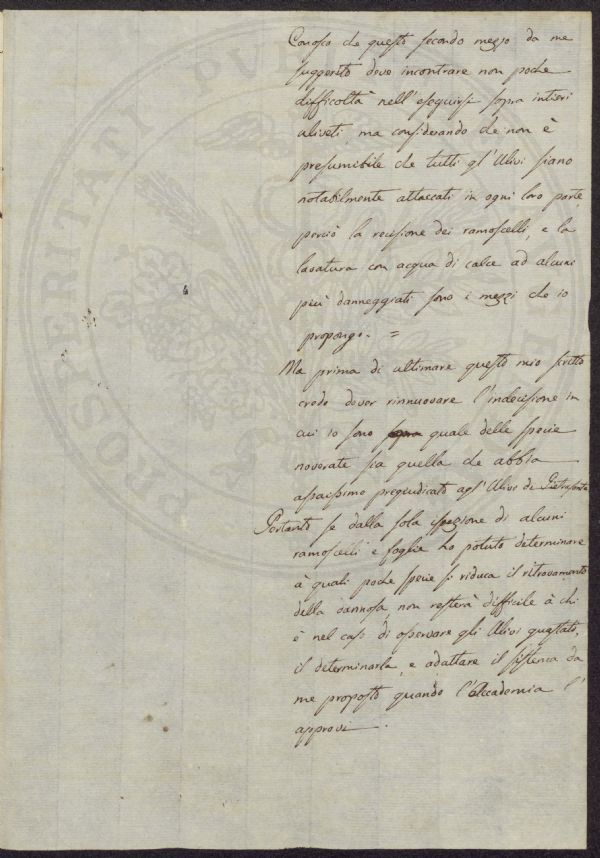 Conosco che questo secondo mezzo da me
suggerito deve incontrare non poche
difficoltà nell'eseguirsi sopra intieri
uliveti, ma considerando che non è
presumibile che tutti gl'Ulivi siano
notabilmente attaccati in ogni loro parte,
perciò la recisione dei ramoscelli, e la
lavatura con acqua di calce ad alcuni
più danneggiati sono i mezzi che io
propongo. =
Ma prima di ultimare questo mio scritto
credo dover rinnuovare l'indecisione in
cui io sono quale delle specie
noverate sia quella che abbia
assaissimo pregiudicato agl'Ulivi di Pietrasanta
Pertanto se dalla sola ispezione di alcuni
ramoscelli e foglie ho potuto determinare
à quali poche specie si riduca il ritrovamento
della dannosa, non resterà difficile à chi
è nel caso di osservare gli Ulivi guastati,
il determinarla, e adattare il sistema da
me proposto quando l'Accademia l'
approvi.
PROSPERITATI PUBLICAE